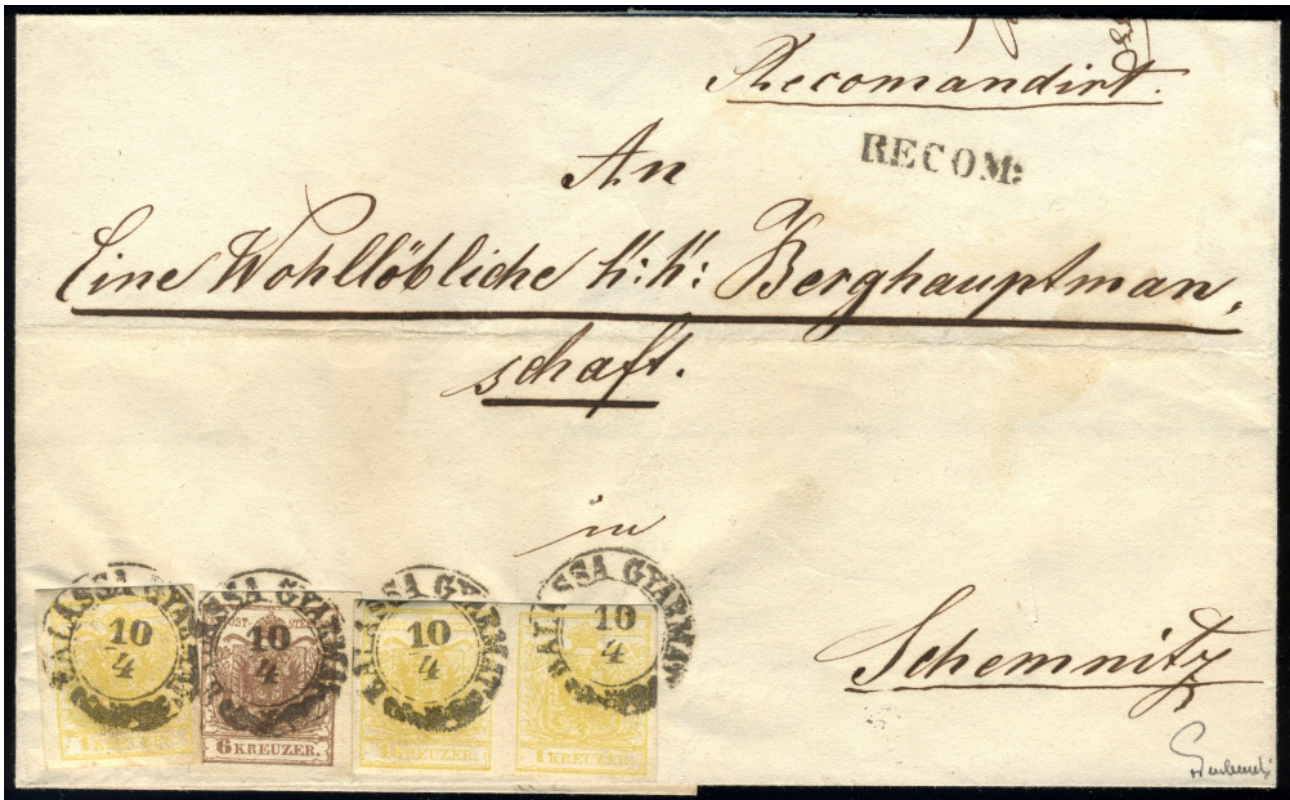 Recomandirt.
RECOM:
An
Eine Wohllöbliche k: k: Berghauptman,
schaft.
in
Schemnitz
BALASSA GYARMAT
10
4
1 KREUZER.
BALASSA GYARMAT
10
4
6 KREUZER.
BALASSA GYARMAT
10
4
1 KREUZER.
BALASSA GYARMAT
10
4
1 KREUZER.